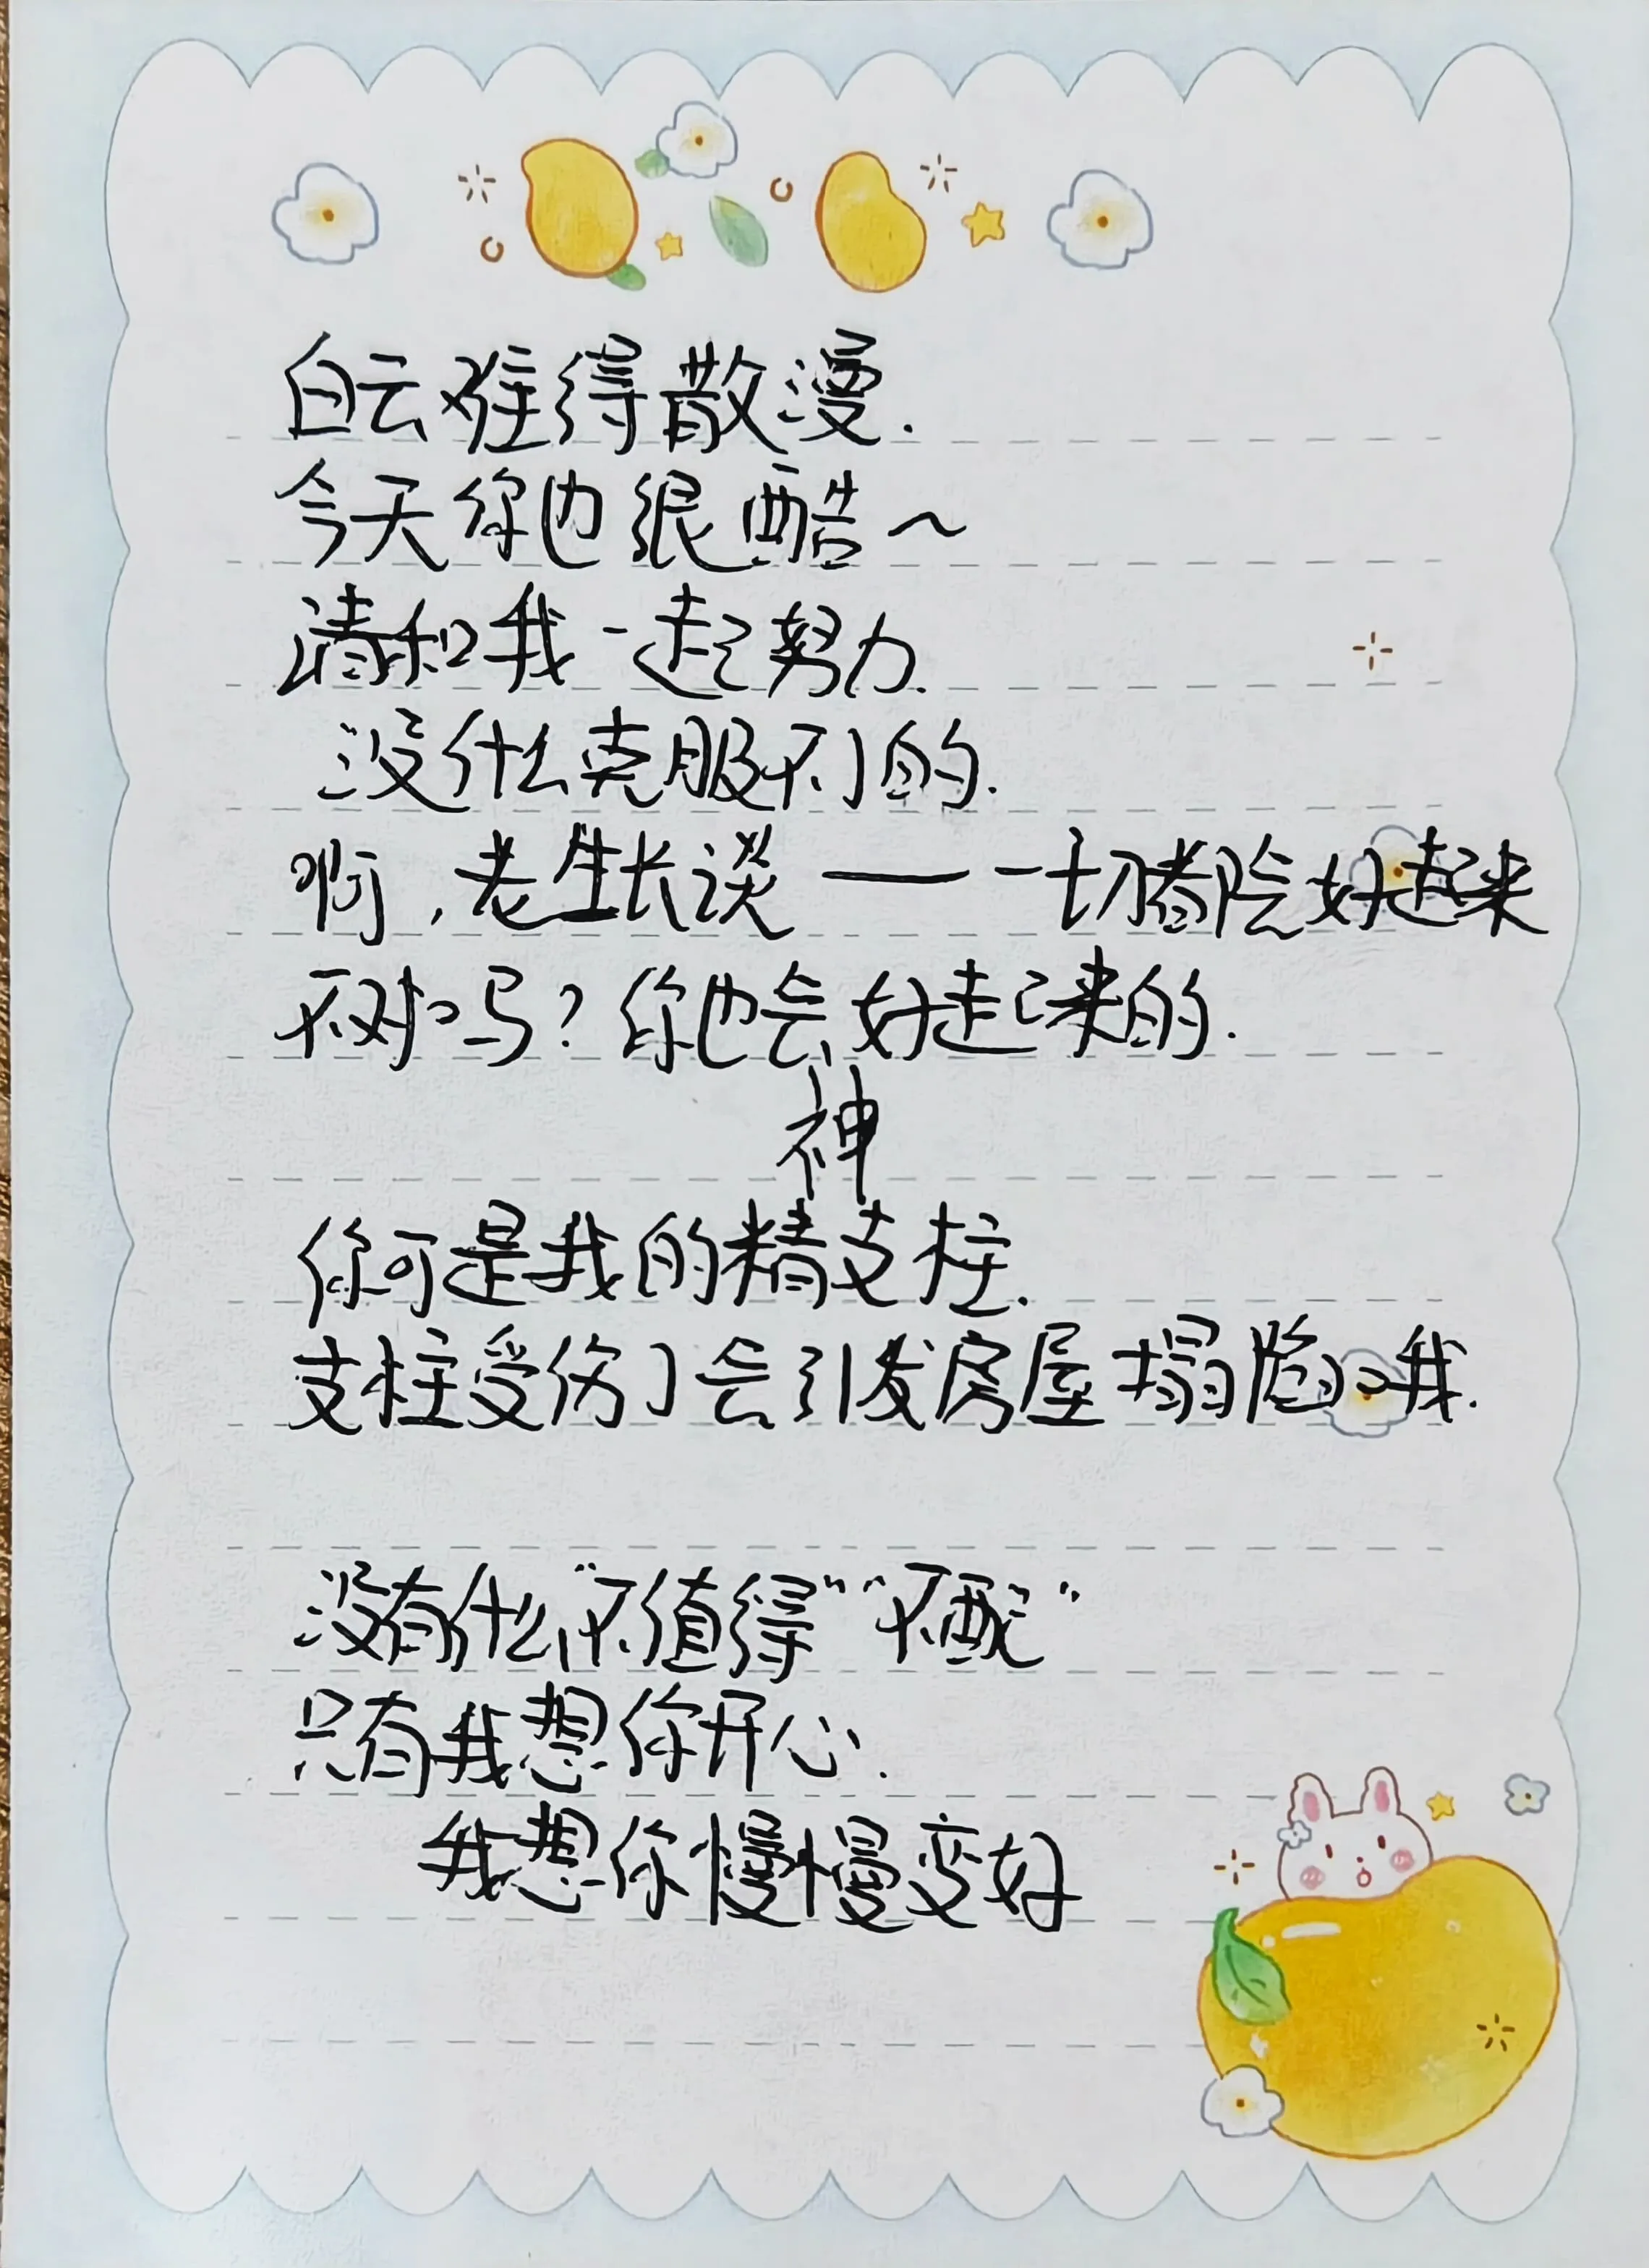 白云难得散漫.
今天你也很酷～
请和我一起努力.
没什么克服不了的.
啊,老生长谈——一切都会好起来
不对吗?你也会好起来的.
神
你可是我的精支柱.
支柱受伤了会引发房屋塌陷的我.
没有什么“不值得”“不配”
只有我想你开心.
我想你慢慢变好